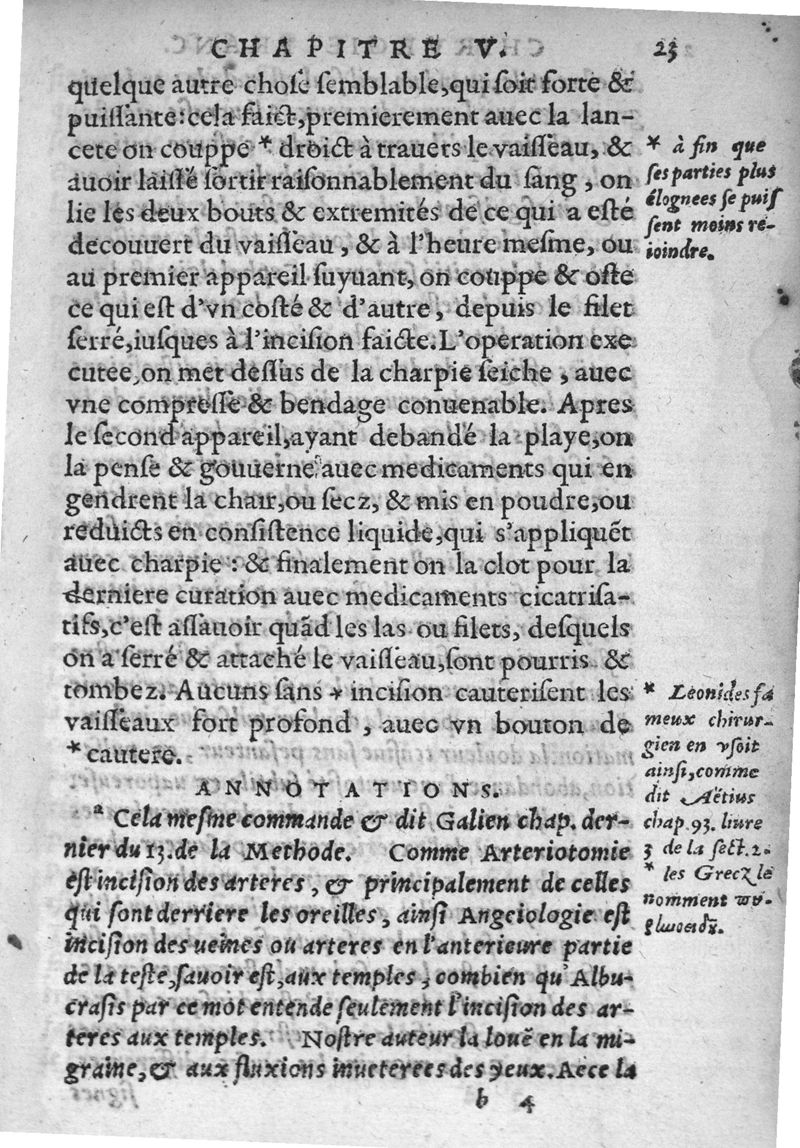 CHAPITRE V. 23
quelque autre chose semblable, qui soit forte &
puissante: cela faict, premierement auec la lan-
cete on couppe * droict à trauers le vaisseau, &
auoir laissé sortir raisonnablement du sang, on
lie les deux bouts & extremités de ce qui a esté
decouuert du vaisseau, & à l'heure mesme, ou
au premier appareil suyuant, on couppe & oste
ce qui est d'vn costé & d'autre, depuis le filet
serré, iusques à l'incision faicte. L'operation exe
cutee, on met dessus de la charpie seiche, auec
vne compresse & bendage conuenable. Apres
le second appareil, ayant debandé la playe, on
la pense & gouuerne auec medicaments qui en
gendrent la chair, ou secz, & mis en poudre, ou
reduicts en consistence liquide, qui s'appliquẽt
auec charpie: & finalement on la clot pour la
derniere curation auec medicaments cicatrisa-
tifs, c'est assauoir quãd les las ou filets, desquels
on a serré & attaché le vaisseau, sont pourris &
tombez. Aucuns sans * incision cauterisent les
vaisseaux fort profond, auec vn bouton de
* cautere.
* à fin que
ses parties plus
élognees se puis
sent moins re-
ioindre.
* Leonides fa
meux chirur-
gien en vsoit
ainsi, comme
dit Aëtius
chap. 93. liure
3 de la sect. 2.
* les Grecz le
nomment
ANNOTATIONS.
a Cela mesme commande & dit Galien chap. der-
nier du 13. de la Methode. Comme Arteriotomie
est incision des arteres, & principalement de celles
qui sont derriere les oreilles, ainsi Angeiologie est
incision des ueines ou arteres en l'anterieure partie
de la teste, sauoir est, aux temples, combien qu'Albu-
crasis par ce mot entende seulement l'incision des ar-
teres aux temples. Nostre auteur la louë en la mi-
graine, & aux fluxions inueterees des yeux. Aece la
b 4